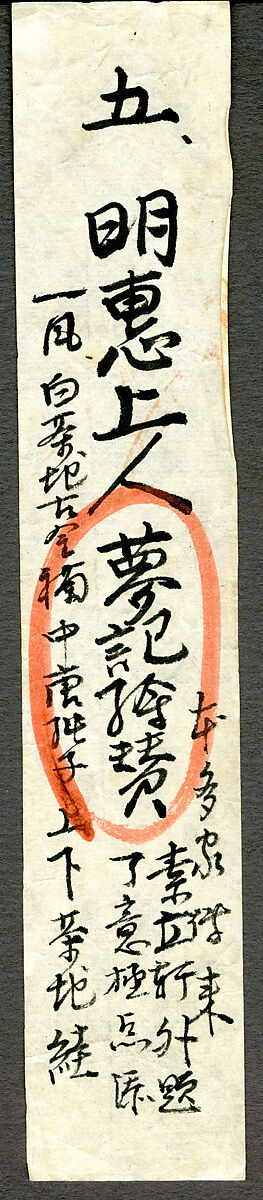 五、明恵上人
夢記絵賛
本多家伝来
素立軒外題
了意極点添
一風 白茶地古金襴 中唐純子 上下茶地絓